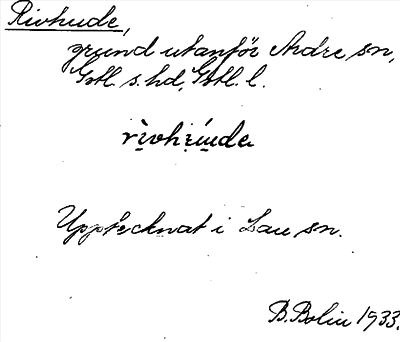 Rivhude,
grund utanför Ardre sn,
Gotl. s. hd, Gotl. l.
Upptecknat i Lau sn.
B. Bolin 1933.